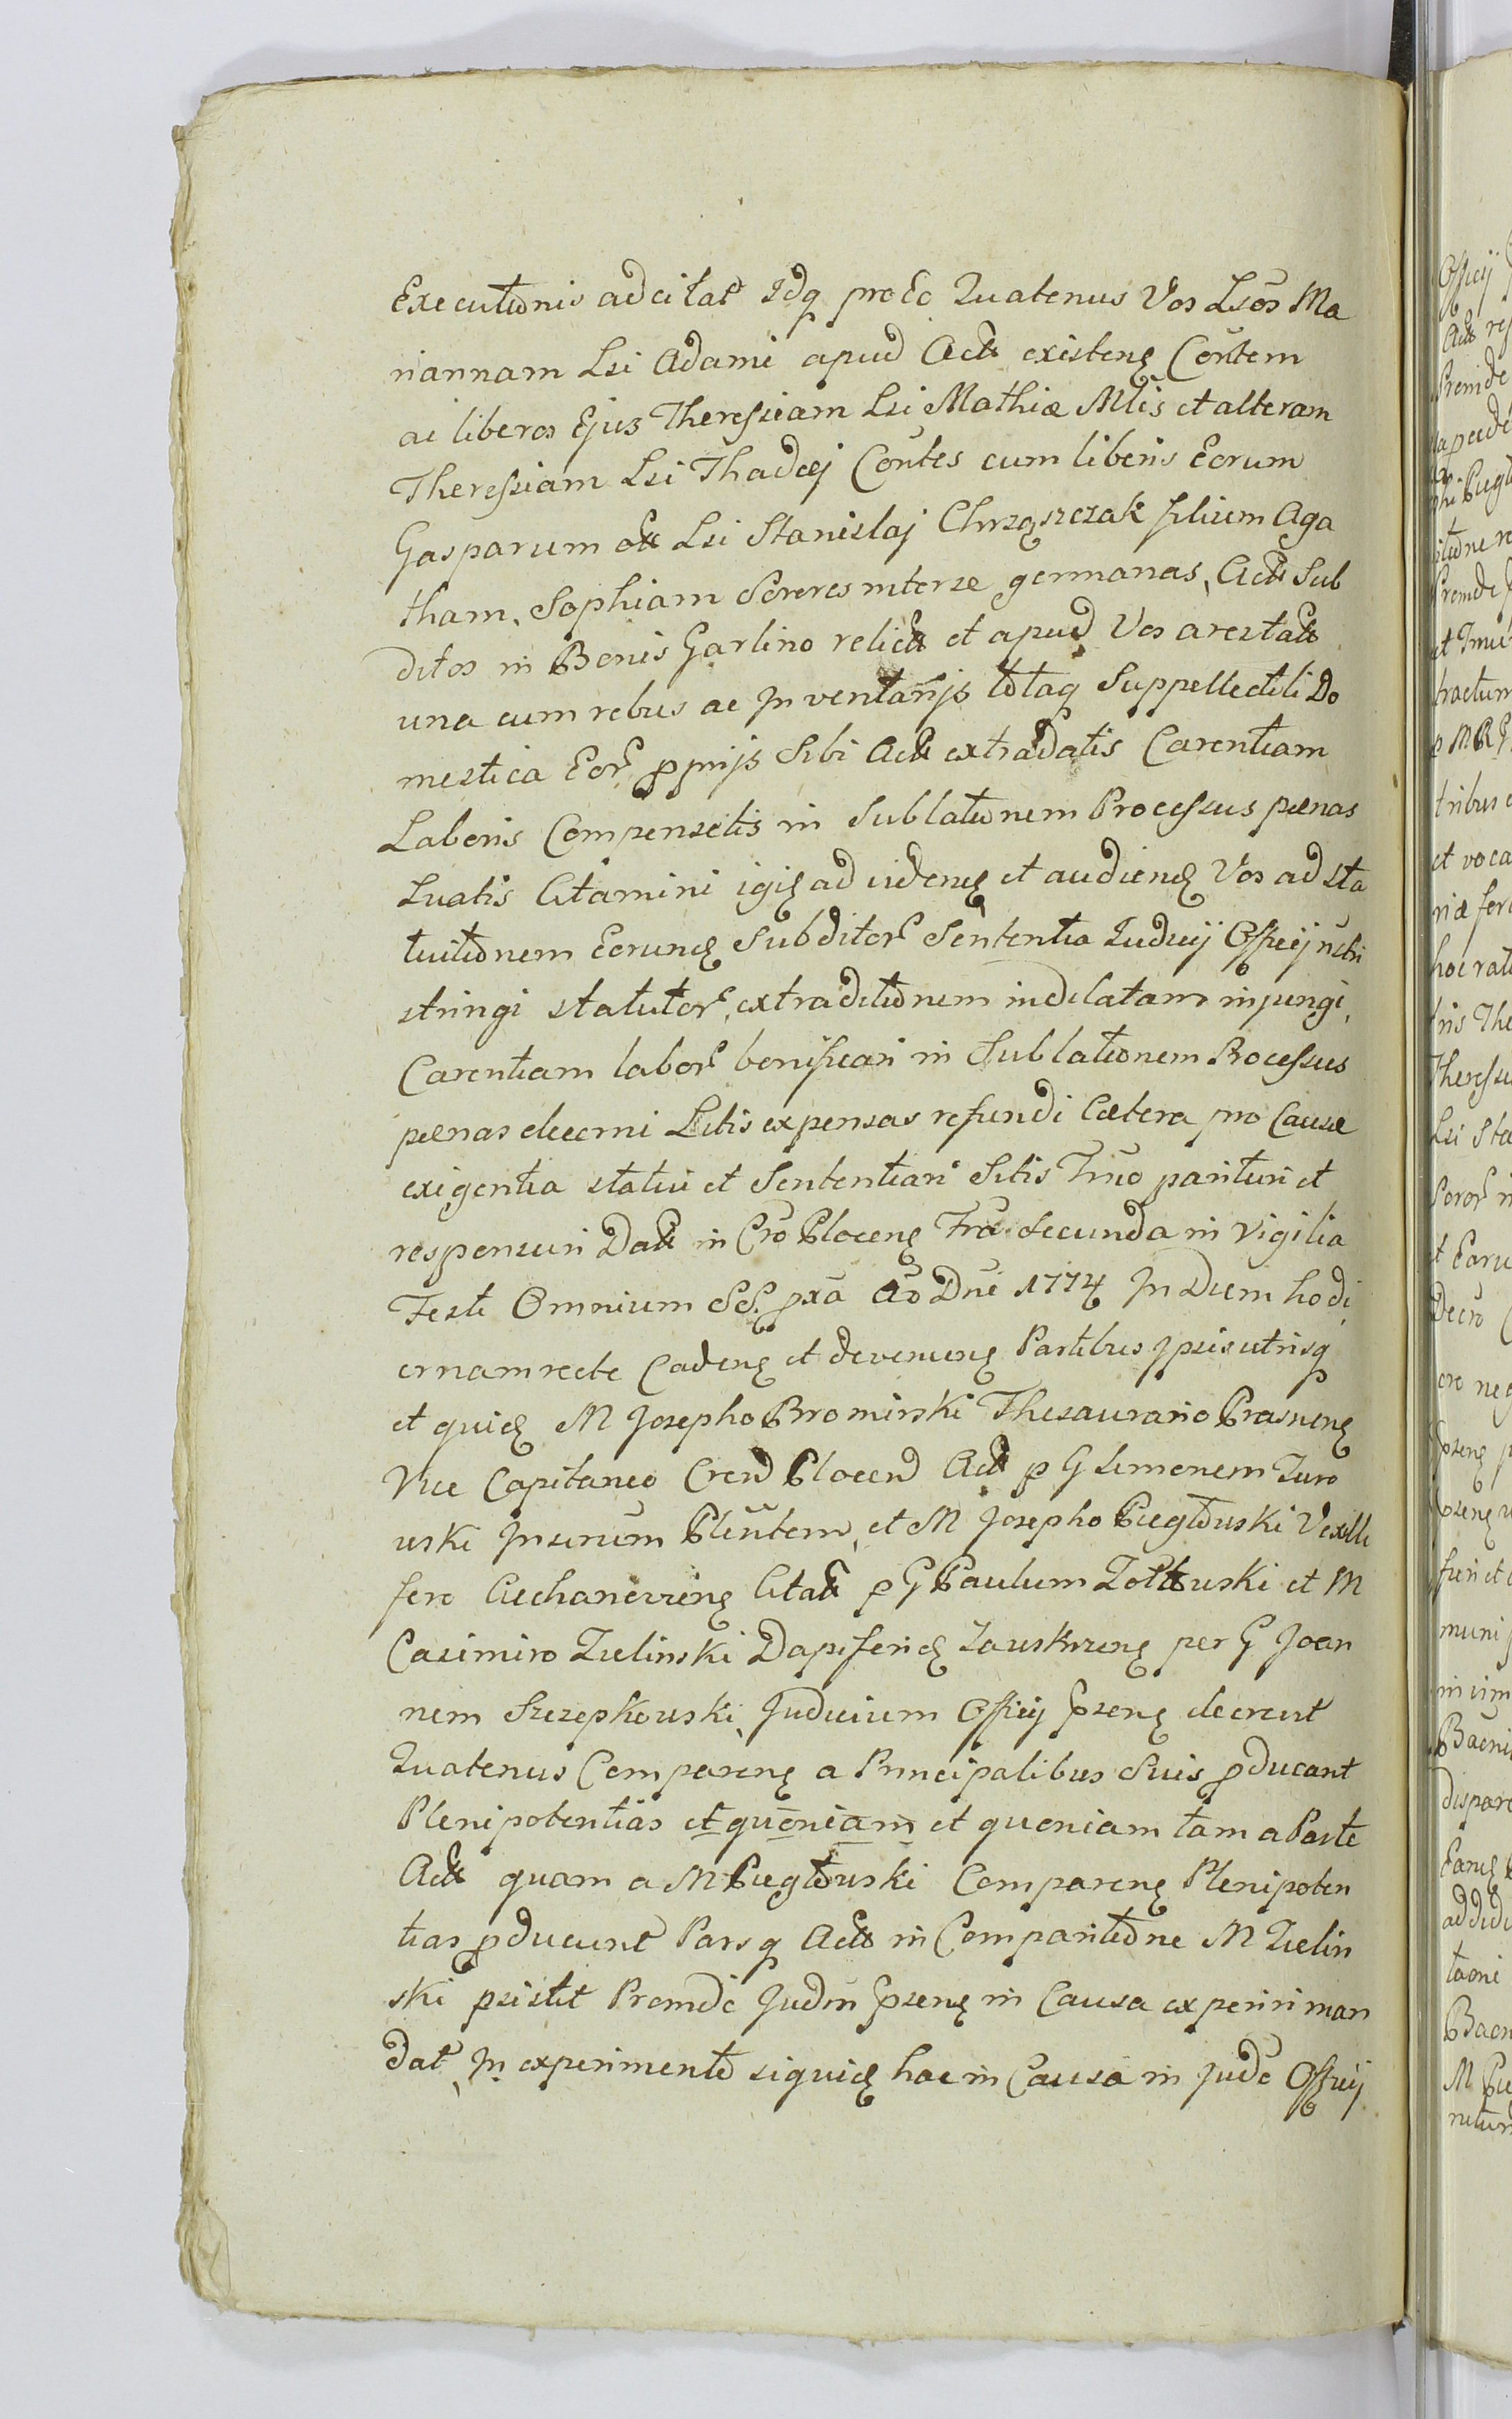 Executionis adcitat Idq pro Eo Quatenus Vos Lsos Ma
riannam Lsi Adami apud Act existen Contem
ac liberos Ejus Theressiam Lsi Mathiæ Mlis et alteram
Theressiam Lsi Thadæj Contes cum liberis Eorum
Gasparum Lsi Stanislaj Chrząszczak filium Aga
tham, Sophiam Sorores interse germanas, Act Sub
ditos in Bonis Garlino relict et apud Vos arestat
una cum rebus ac Inventarijs totaq Suppellectili Do
mestica Eor ppnijs Sibi Act extradatis Carentiam
Laboris Compensetis in Sublationem Processus pænas
Luatis Citamini igit ad viden et audien Vos ad sta
tuitionem Eorund Subditor Sententia Judicij Officij nstri
stringi statutor, extraditionem indilatam injungi,
Carentiam labor bonificari in Sublationem Processus
pænas decerni Litis expensas refundi Cætera pro Causæ
exigentia statui et Sententiari Sitis Trno parituri et
responsuri Dat in Cro Plocen Fra Secunda in Vigilia
Festi Omnium SS. pxa Ao Dni 1774 In Diem hodi
ernam recte Caden et devenien Partibus Ipsis utrisq
et quid M Josepho Bromirski Thesaurario Prasnen
Vice Capitaneo Cren Plocen Act p G Simonem Zuro
wski Insrium Plentem, et M Josepho Pieglowski Vexilli
fero Ciechanovien Citat p G Paulum Zoltowski et M
Casimiro Zielinski Dapiferid Zawskrzen per G Joan
nem Szczepkowski, Judicium Officij psen decrevit
Quatenus Comparen a Principalibus Suis pducant
Plenipotentias et quoniam et quoniam tam a Parte
Act quam a M Pieglowski Comparen Plenipoten
tias pducunt Pars q Act in Comparitione M Zielin
ski psistit Proinde Judm psen in Causa experiri man
dat, In experimento siquid hac in Causa in Judo Officij